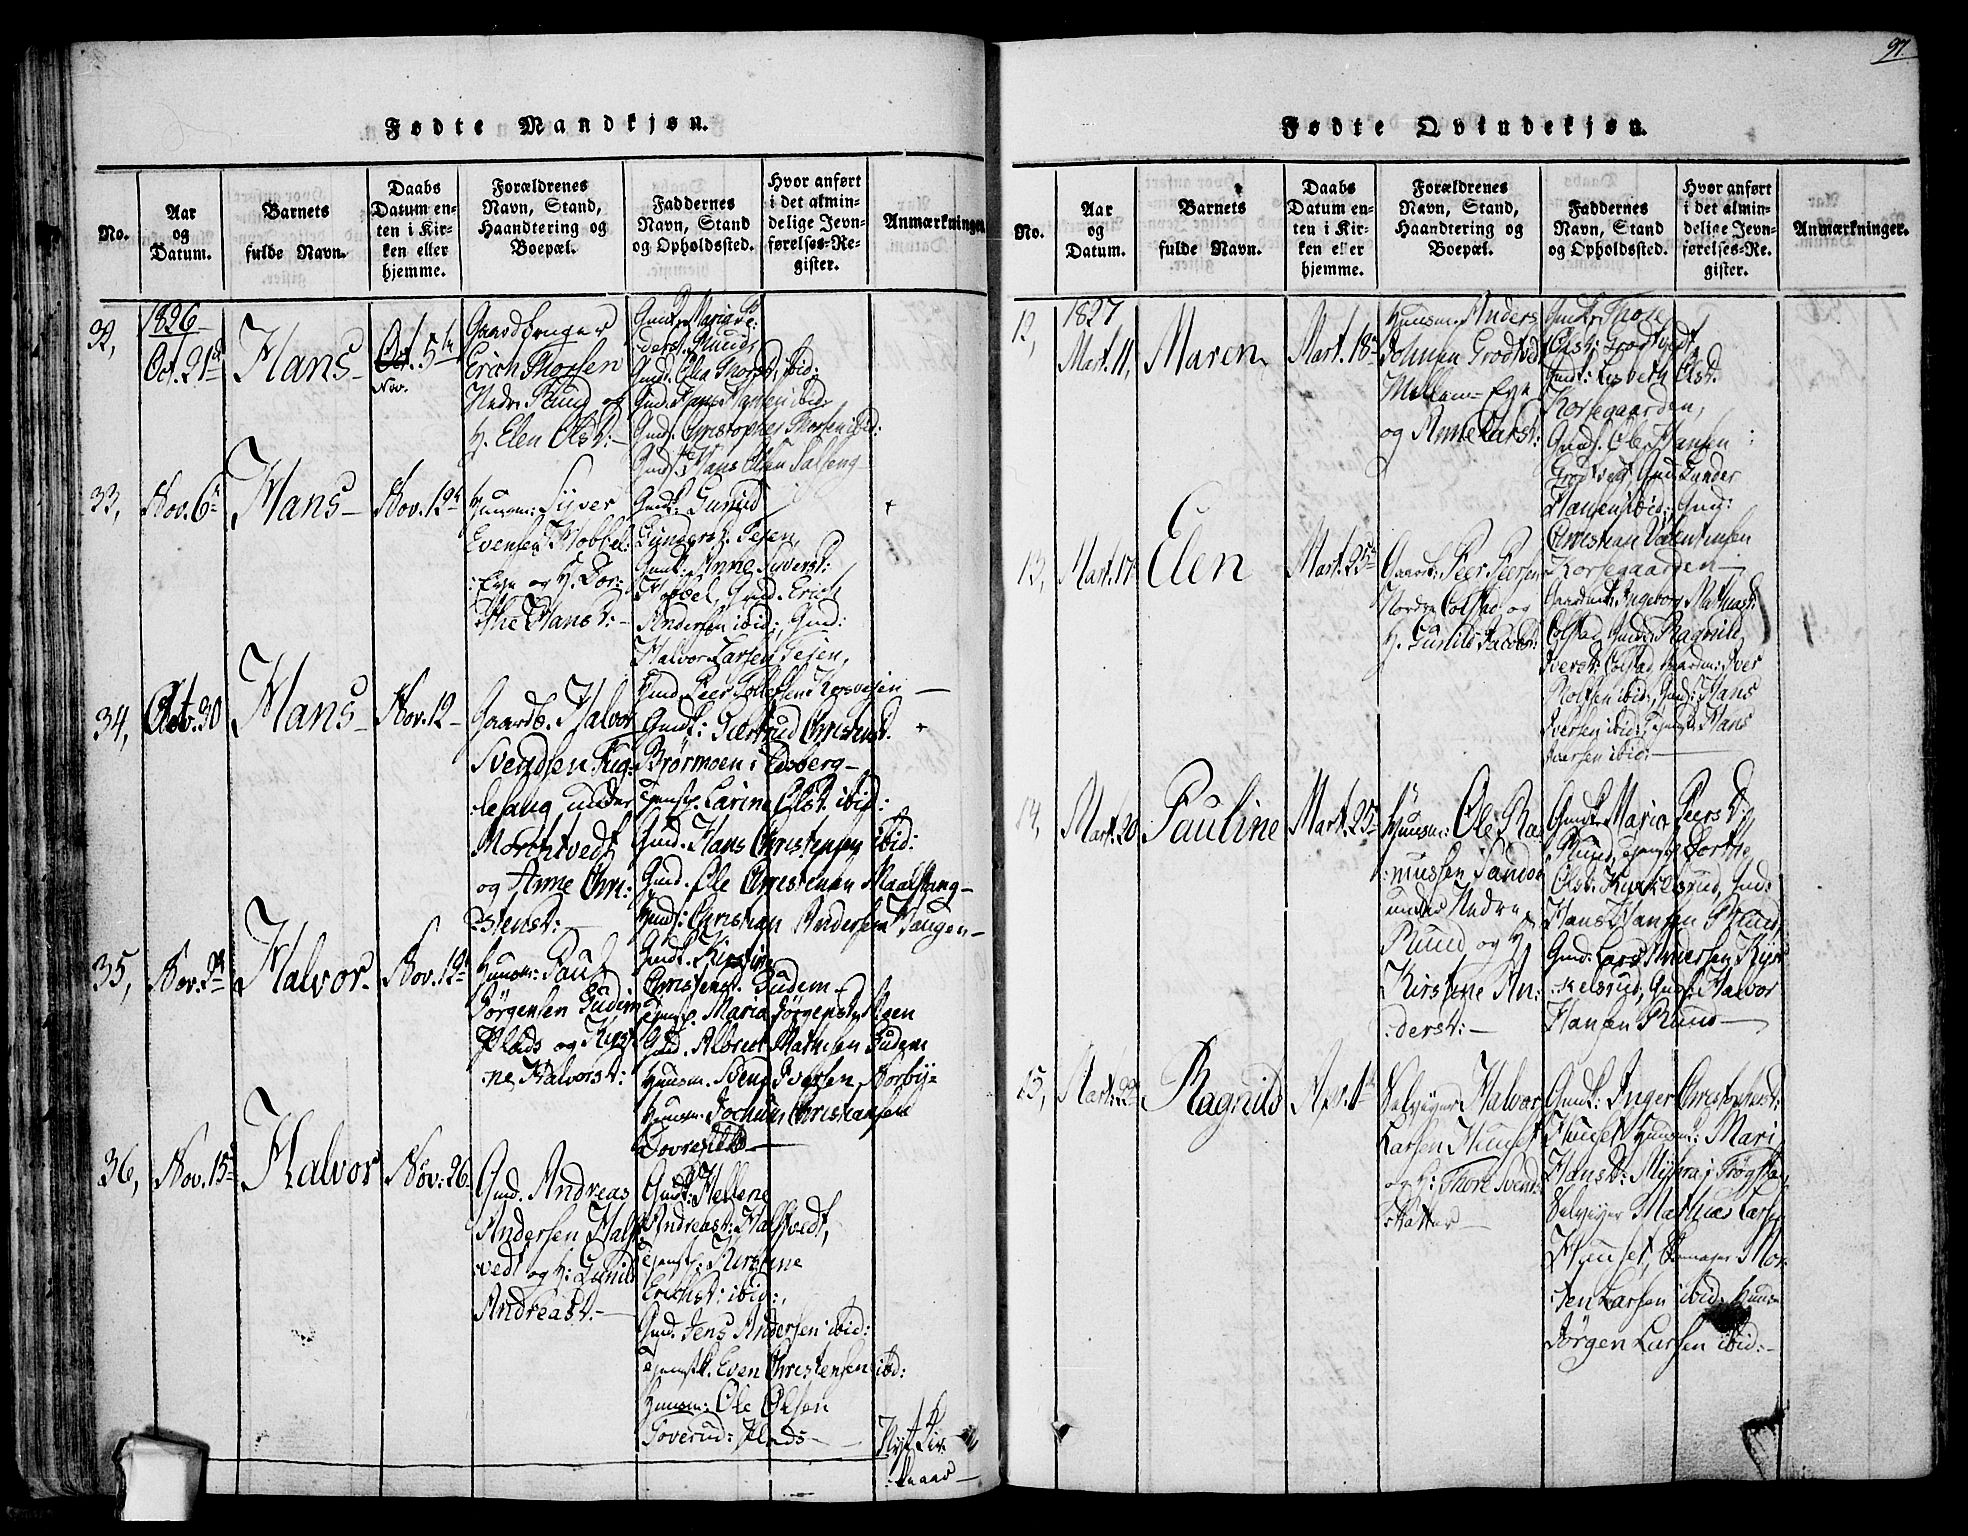 97.
Fødte Mandkjøn.
No.
Aar
og
Datum.
Barnets
fulde Navn.
Daabs
Datum en-
ten i Kir-
ken eller
hjemme.
Forældrenes
Navn, Stand,
Haandtering og
Boepæl.
Faddernes
Navn, Stand
og Opholdssted.
Hvor anført
i det almin-
delige Jevn-
førelses-Re-
gister.
Anmærkninger
32,
1826
Oct. 21de
Hans
Oct. 5te
Nov.
Gaardbruger
Erich Thorsen
Nedre Ruud og
H. Elen Olsd:
Gmdk. Maria Pe:
dersd. Ruud,
Gmd. Hans Hansen ibid,
Gmd. Christopher Thorsen ibid:
Gmd. Hans Olsen
33,
Nov. 6te
Hans
Nov. 12te
Huusm: Syver
Evensen Hobbel:
Eye og H. Dor:
the Hansd:
Gmdk. Gunild
Anne Siversd:
Hobbel, Gmd. Erich
Andersen ibid:, Gmd:
Halvor Larsen
+
34,
Oct. 30
Hans
Nov. 12
Gaardb. Halvor
Svendsen Fug:
lesang under
Morthvedt
og Anne Chri:
stensd:
Gmdk: Giertrud Christensd.
Brørmoen i Eidsberg
Tjenstp. Larine Olsd. ibid:
Gmd. Hans Christensen ibid:
Gmd. Ole Christensen
Gmd: Christian Andersen Tangen
+
35,
Halvor
Nov. 12te
Huusm: Paul
Jørgensen Gudim
Plads og Kirst:
ne Halvorsd:
Gmdk. Kirstine
Christensd. Gudem
Tjenstp. Maria Jørgensd. Moen
Gmd. Albret Mathisen Gudem
Huusm. Svend Iversen Norbye
Huusm: Jochum Christiansen
36,
Nov. 15de
Halvor
Nov: 26
Gmd. Andreas
Andersen Half:
vedt og H: Gunild
Andreasd:
Gmdk: Hellene
Andreasd: Halfvedt,
Tjenstp: Kirstine
Erichsd: ibid:,
Gmd. Jens Andersen ibid:
Tjenstk. Even Christensen ibid:
Huusm: Ole Olsen
Toverud: Plads
Nyt Kir-
keaar
Fødte Qvindekjøn.
No.
Aar
og
Datum.
Barnets
fulde Navn.
Daabs
Datum en-
ten i Kir-
ken eller
hjemme.
Forældrenes
Navn, Stand,
Haandtering og
Boepæl.
Faddernes
Navn, Stand
og Opholdssted.
Hvor anført
i det almin-
delige Jevn-
førelses-Re-
gister.
Anmærkninger.
12,
1827
Mart. 11,
Maren
Mart. 18de
Huusm. Anders
Johnsen Grodtvedt
Mellem-Eye
og Anne Larsd:
Gmdk: Thore
Olsd: Grodtvedt,
Gmdk: Lisbeth Olsd.
Korsegaarden,
Gmd. Ole Hansen
Grodtvedt, Gmd. Gunder
Hansen ibid:, Gmd:
Christian Valentinsen
Korsegaarden
13,
Mart. 17
Elen
Mart. 25de
Gaardb: Peer Peersen
Nordre Colstad og
H. Gunild Halvorsd:
Gaardmk. Ingeborg Mathiasd:
Colstad, Gmdk: Ragnild
Iversd: Colstad, Gaardm: Iver
Rolfsen ibid:, Gmd: Hans
Iversen ibid:, Hans
Iversen ibid:
14,
Mart. 20
Pauline
Mart. 25de
Huusm: Ole Ra:
mussen
under Nedre
Ruud og H
Kirstene An:
dersd:
Gmdk. Maria Peersd:
Ruud, Tjenstp Dorthe
Olsd: Kirkelsrud, Gmd:
Hans Hansen Ruud,
Gmd: Lars Andersen Kyr
kelsrud, Gmd: Halvor
Hansen Ruud
15,
Mart: 22
Ragnild
Apr. 1ste
Selveyer Halvor
Larsen Huuset
og H: Thore Svends:
datter
Gmdk. Inger Christophersd:
Huuset, Huusmk: Mari
Hansd: Trøgstad,
Selveyer Mathias Larsen
Huuset, Mor:
ten Larsen ibid: Huusm
Jørgen Larsen ibid: